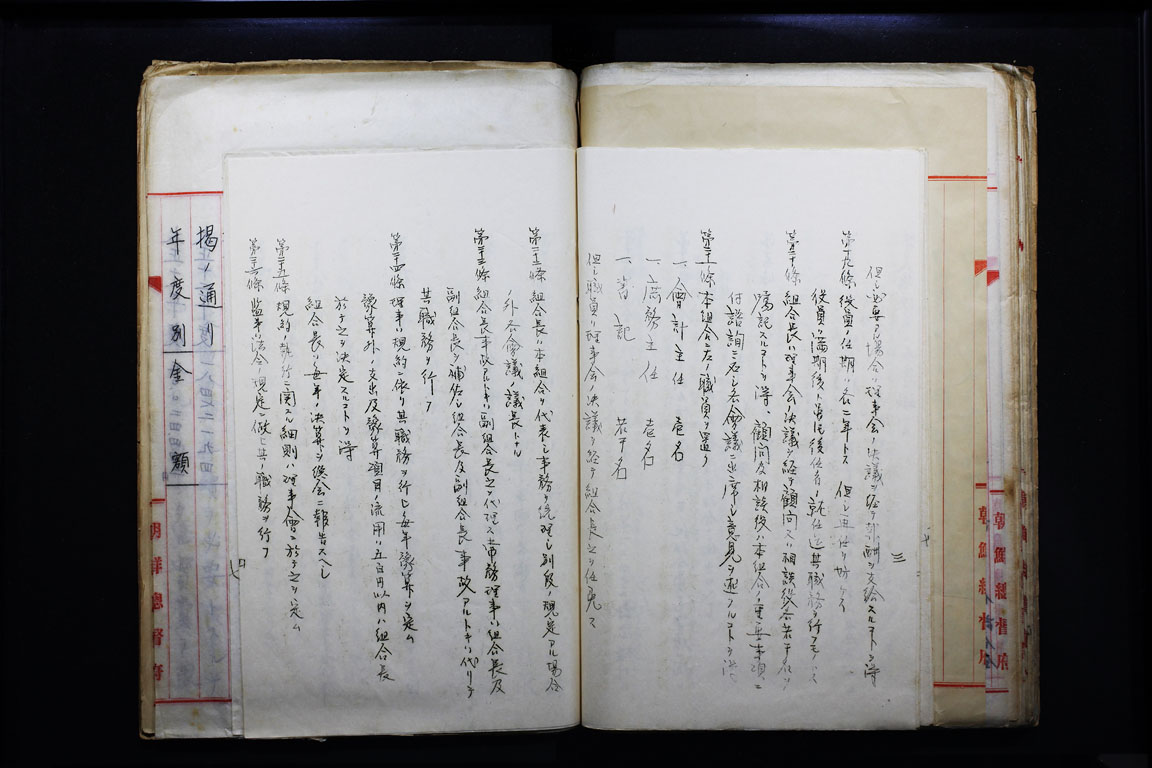 但シ必要ノ場合ハ理事会ノ決議ヲ経テ報酬ヲ支給スルコトヲ得
三
第十九條 役員ノ任期ハ各二年トス 但シ再任ヲ妨ケス
役員ハ満期後ト雖モ後任者ノ就任迄其職務ヲ行フモノトス
第二十條 組合長ハ理事会ノ決議ヲ経テ顧問又ハ相談役各若干名ヲ
嘱託スルコトヲ得、顧問及相談役ハ本組合ノ重要事項ニ
付諮詢ニ応シ各會議ニ出席シ意見ヲ述フルコトヲ得
第二十一條 本組合ニ左ノ職員ヲ置ク
一、會計主任 壱名
一、庶務主任 壱名
一、書記 若干名
但シ職員ハ理事会ノ決議ヲ経テ組合長之ヲ任免ス
第二十二條 組合長ハ本組合ヲ代表シ事務ヲ統理シ別段ノ規定アル場合
ノ外各會議ノ議長トナル
第二十三條 組合長事故アルトキハ副組合長之ヲ代理ス常務理事ハ組合長及
副組合長ヲ補佐シ組合長及副組合長事故アルトキハ代リテ
其職務ヲ行フ
第二十四條 理事ハ規約ニ依リ其職務ヲ行ヒ毎年豫算ヲ定ム
豫算外ノ支出及豫算項目ノ流用ハ五百円以内ハ組合長
於テ之ヲ決定スルコトヲ得
組合長ハ毎年ノ決算ヲ総会ニ報告スヘシ
第二十五條 規約ノ執行ニ関スル細則ハ理事會ニ於テ之ヲ定ム
第二十六條 監事ハ法令ノ規定ニ倣ヒ其ノ職務ヲ行フ
四
掲ノ通リ
年度別金額
朝鮮總督府
朝鮮總督府
朝鮮總督府